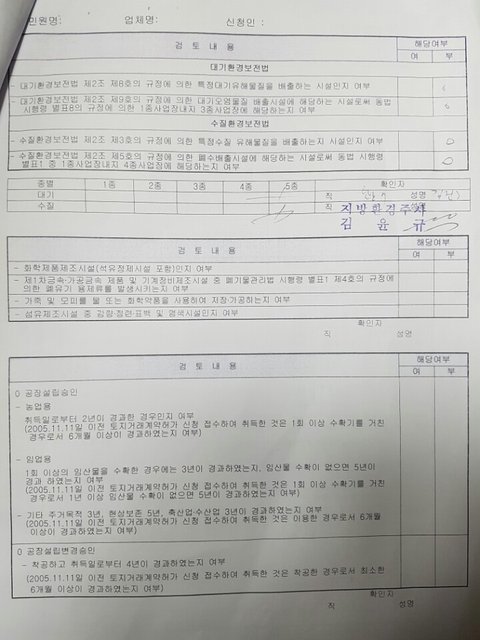 민원명:    업체명:    신청인 :
검 토 내 용    해당여부
여    부
대기환경보전법
- 대기환경보전법 제2조 제8호의 규정에 의한 특정대기유해물질을 배출하는 시설인지 여부
- 대기환경보전법 제2조 제9호의 규정에 의한 대기오염물질 배출시설에 해당하는 시설로써 동법
시행령 별표8의 규정에 의한 1종사업장내지 3종사업장에 해당하는지 여부
수질환경보전법
- 수질환경보전법 제2조 제3호의 규정에 의한 특정수질 유해물질을 배출하는 시설인지 여부
- 수질환경보전법 제2조 제5호의 규정에 의한 폐수배출시설에 해당하는 시설로써 동법 시행령
별표1 중 1종사업장내지 4종사업장에 해당하는지 여부
종별    1종    2종    3종    4종    5종    확인자
대기    직    성명
수질    직    성명
지방환경주사
김 윤 규
검 토 내 용    해당여부
여    부
- 화학제품제조시설(석유정제시설 포함)인지 여부
- 제1차금속·가공금속 제품 및 기계정비제조시설 중 폐기물관리법 시행령 별표1 제4호의 규정에
의한 폐유기 용제류를 발생시키는지 여부
- 가죽 및 모피를 물 또는 화학약품을 사용하여 저장·가공하는지 여부
- 섬유제조시설 중 감량·정련·표백 및 염색시설인지 여부
확인자
직    성명
검 토 내 용    해당여부
여    부
O 공장설립승인
- 농업용
취득일로부터 2년이 경과한 경우인지 여부
(2005.11.11일 이전 토지거래계약허가 신청 접수하여 취득한 것은 1회 이상 수확기를 거친
경우로서 6개월 이상이 경과하였는지 여부)
- 임업용
1회 이상의 임산물을 수확한 경우에는 3년이 경과하였는지, 임산물 수확이 없으면 5년이
경과 하였는지 여부
(2005.11.11일 이전 토지거래계약허가 신청 접수하여 취득한 것은 1회 이상 수확기를 거친
경우로서 1년 이상 임산물 수확이 없으면 5년이 경과하였는지 여부)
- 기타 주거목적 3년, 현상보존 5년, 축산업·수산업 3년이 경과하였는지 여부
(2005.11.11일 이전 토지거래계약허가 신청 접수하여 취득한 것은 이용한 경우로서 6개월
이상이 경과하였는지 여부)
O 공장설립변경승인
- 착공하고 취득일로부터 4년이 경과하였는지 여부
(2005.11.11일 이전 토지거래계약허가 신청 접수하여 취득한 것은 착공한 경우로서 최소한
6개월 이상이 경과하였는지 여부)
확인자
직    성명